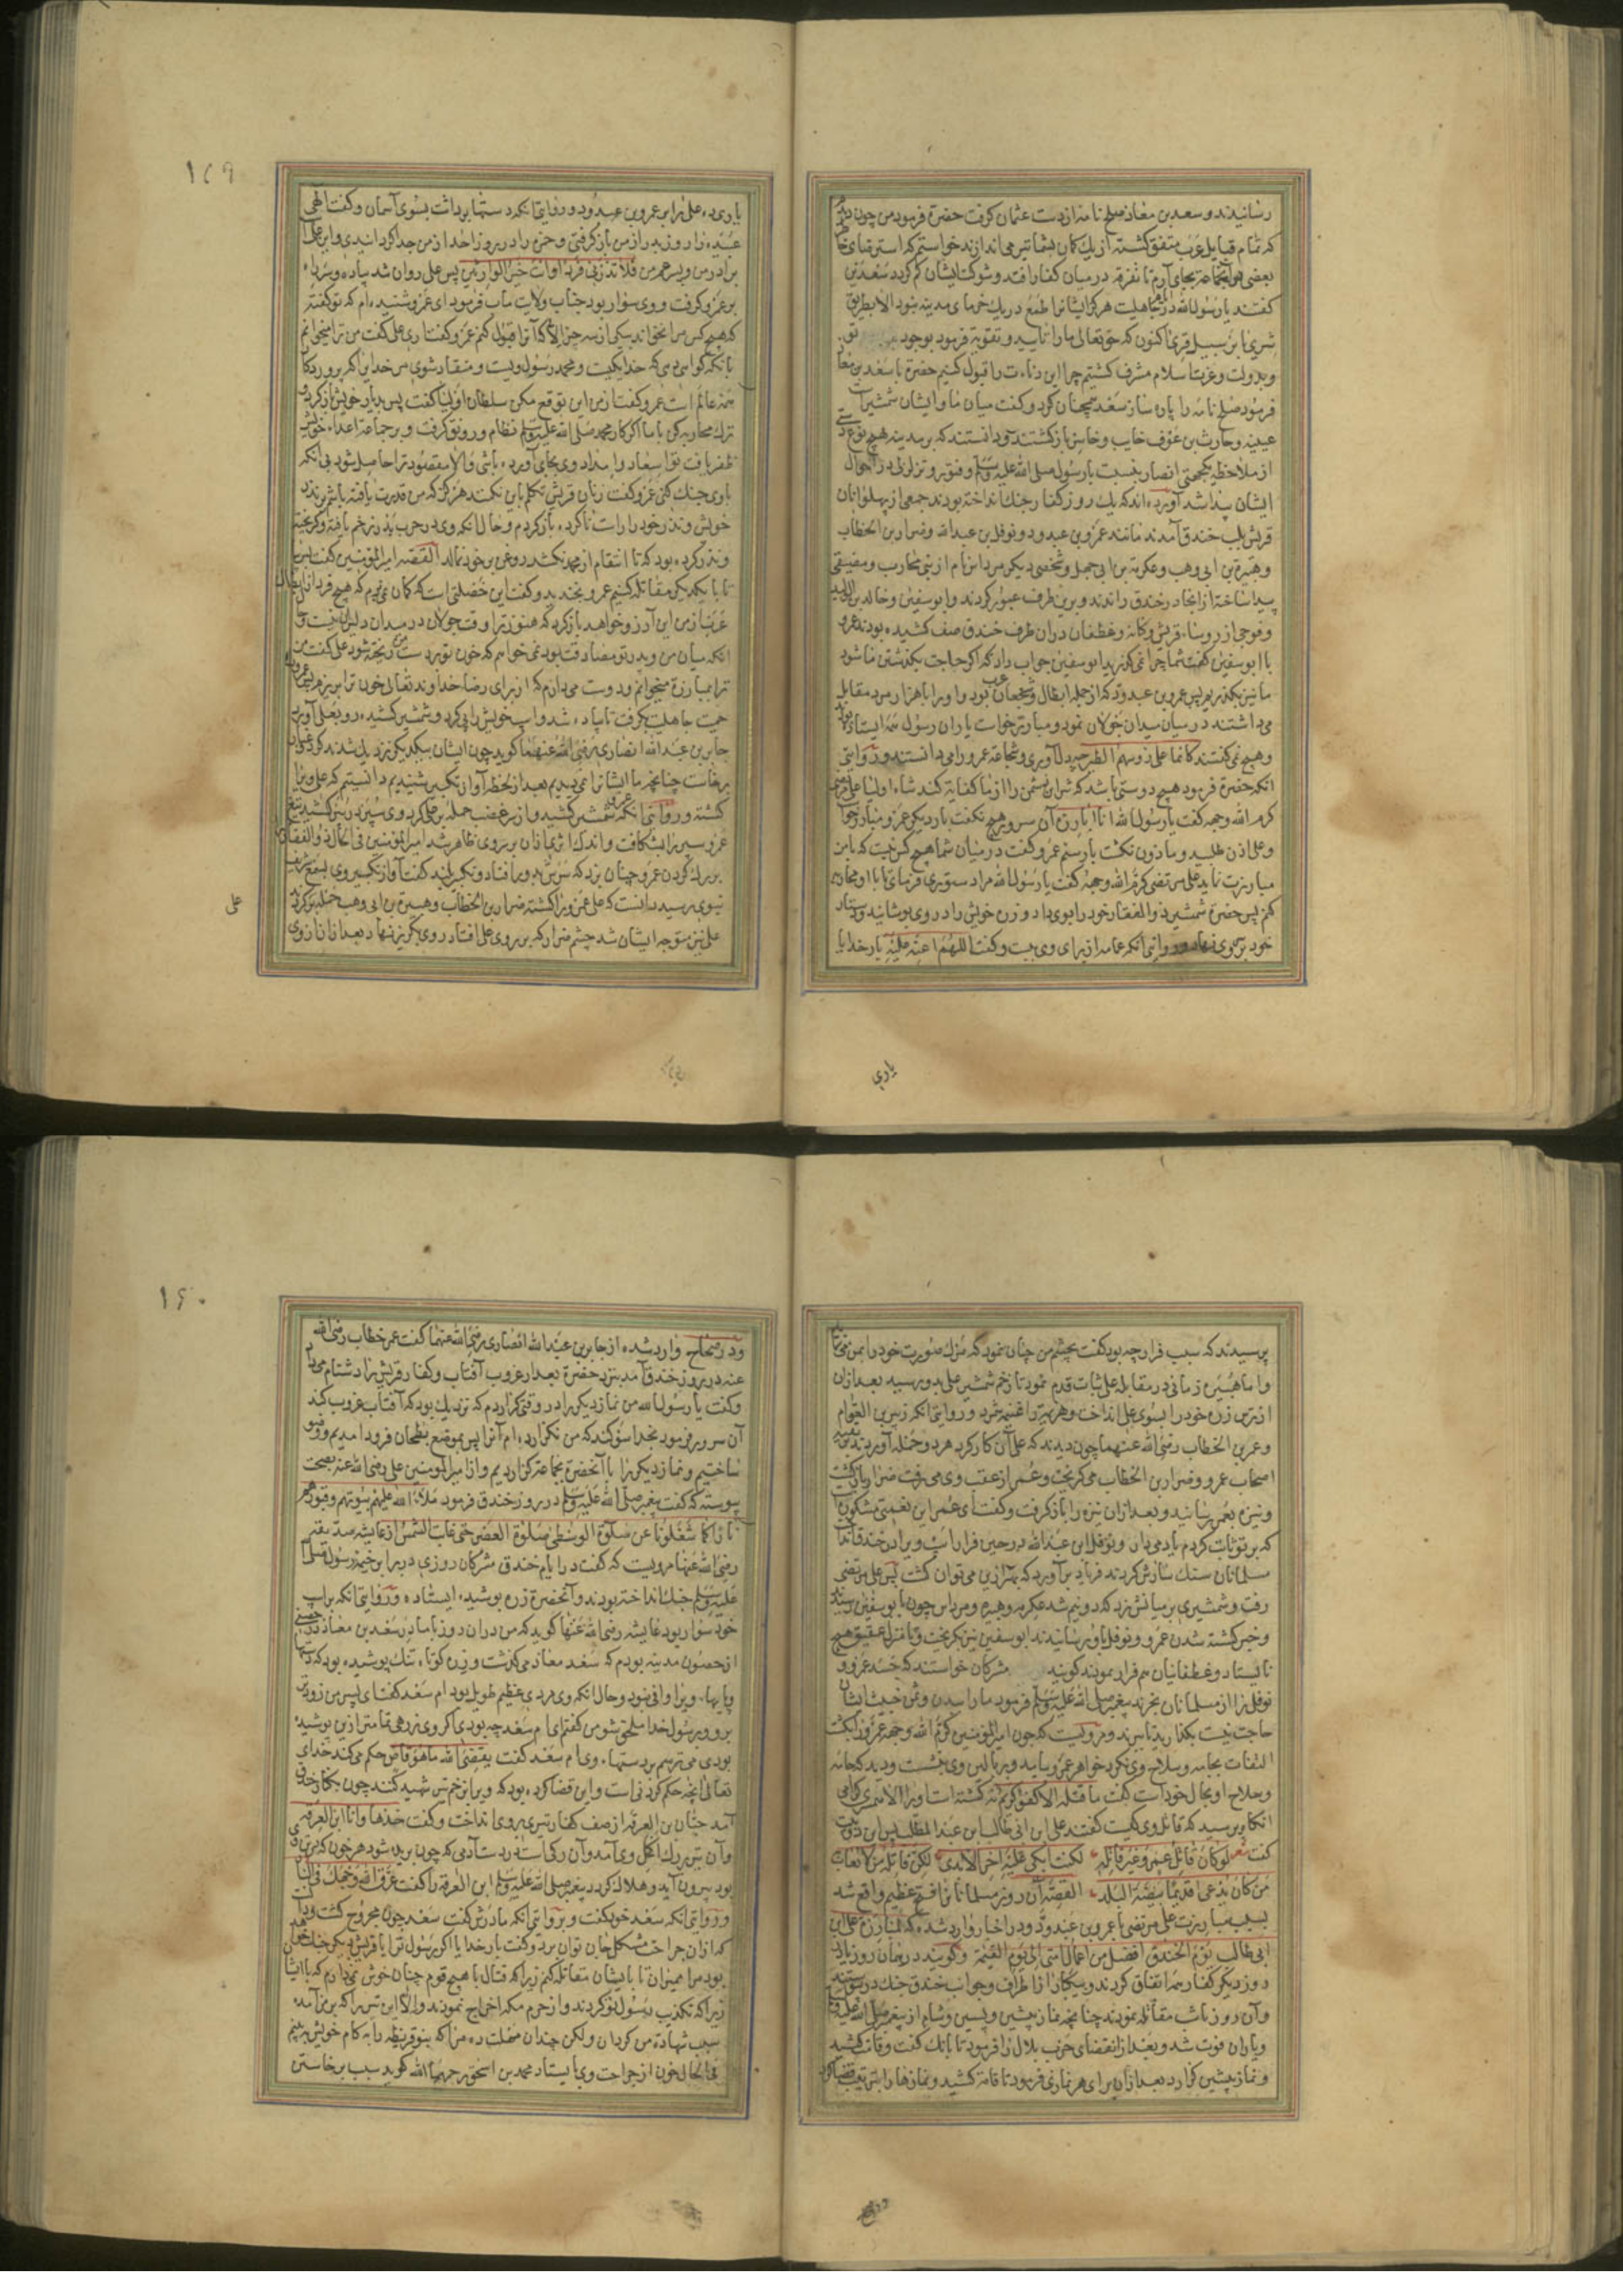 رسانیدند و سعد بن معاذ صلح نامه از دست عثمان گرفت حضرة فرمود من چون دیدم
که تمام قبایل عرب متفق گشته از یک کمان بشما تیر می اندازند خواستم که استرضای خاطر
بعضی بجای آرم تا تفرقه در میان کفار افتد و شوکت ایشان کم گردد سعدین
گفتند یا رسول الله در جاهلیت هرگز ایشانرا طمع در یک خرمای مدینه نبود الا بطریق
اکنون که حق تعالی ما را تایید و تقویة فرمود بوجود تو
و بدولت و عزت اسلام مشرف گشتیم چرا این دناءت را قبول کنیم حضرة با سعد بن معاذ
فرمود صلح نامه را پاره ساز سعد همچنان کرد و گفت میان ما و ایشان شمشیرست
عیینه و حارث بن عوف خایب و خاسر باز گشتند و دانستند که بر مدینه هیچ نوع دستی
از ملاحظه یکجهتی انصار بنسبت با رسول صلی الله علیه وسلم و فتور و تزلزلی در احوال
ایشان پیدا شد آورده اند که یک روز کفار جنک انداخته بودند جمعی از پهلوانان
قریش بلب خندق آمدند مانند عمرو بن عبدود و نوفل بن عبد الله و ضرار بن الخطاب
و هبیرة بن ابی وهب و عکرمة بن ابی جهل و شخصی دیکر مرداس نام از بنی محارب و مضیقی
پیدا ساخته از انجا در خندق راندند و برین طرف عبور کردند و ابو سفین و خالد بن الولید
و فوجی از روساء قریش و کنانه و غطفان دران طرف خندق صف کشیده بودند عمرو
با ابو سفین گفت شما چرا نمی گذرید ابو سفین جواب داد که اگر حاجت بگذشتن ما شود
ما نیز بگذریم پس عمرو بن عبدود که از جمله ابطال و شجعان عرب بود و او را با هزار مرد مقابل
می داشتند در میان میدان جولان نمود و مبارز خواست یاران رسول همه ایستاده بودند
و هیچ نمی گفتند کانما علی رؤسهم الطیر چه دلاوری و شجاعة عمرو را می دانستند و روایتی
انکه حضرة فرمود هیچ دوستی باشد که شر این دشمن را از ما کفایة کند شاه اولیا علی مرتضی
کرم الله وجهه گفت یا رسول الله انا ابارزه آن سرور هیچ نگفت بار دیگر عمرو مبارز خواست
و علی اذن طلبید و ماذون نگشت بار سیم عمرو گفت در میان شما هیچ کس نیست که با من
مبارزت نماید علی مرتضی کرم الله وجهه گفت یا رسول الله مرا دستوری فرمای تا با او محاربه
کنم پس حضرة شمشیر ذو الفقار خود را بوی داد و زره خویش را در وی پوشانید و دستار
خود بر سر وی نهاد و روایتی انکه عمامه از برای وی ببست و گفت اللهم اعنه علیه بار خدایا
یاری
۱۵۹
یاری ده علی را بر عمرو بن عبدود و روایتی انکه دستها برداشت بسوی آسمان و گفت الهی
عبیده را روز بدر از من باز گرفتی و حمزه را در روز احد از من جدا گردانیدی و این علیست
برادر من و پسر عم من فلا تذرنی فردا و انت خیر الوارثین پس علی روان شد پیاده و سر راه
بر عمرو گرفت و وی سوار بود جناب ولایت مآب فرمود ای عمرو شنیده ام که تو گفته
که هیچ کس مرا نخواند بیکی از سه چیز الا که آنرا قبول کنم عمرو گفت آری علی گفت من ترا میخوانم
بانکه گواهی دهی که خدا یکیست و محمد رسول ویست و منقاد شوی مر خدای را که پروردگار
همه عالم است عمرو گفت از من این توقع مکن سلطان اولیا گفت پس بدیار خویش باز گرد و
ترک محاربه کن با ما اگر کار محمد صلی الله علیه وسلم نظام و رونق گرفت و بر جماعة اعداء خویش
ظفر یافت تو اسعاد و امداد وی بجای آورده باشی والا مقصود ترا حاصل شود بی انکه
با وی جنک کنی عمرو گفت زنان قریش تکلم باین نکنند هرگز که من قدرت یافته باشم بر نذر
خویش و نذر خود را راست نا کرده باز گردم و حال انکه وی در حرب بدر زخم یافته و گریخته
و نذر کرده بود که تا انتقام از محمد نکشد روغن بر خود نمالد القصه امیر المؤمنین گفت
تا با یکدیگر مقاتله کنیم عمرو بخندید و گفت این خصلتی است که گمان نمی بردم که هیچ فرد از ابطال
عرب از من این آرزو خواهد باز گرد که هنوز ترا وقت جولان در میدان دلیران نیست و حال
انکه میان من و پدر تو مصادقت بود نمی خواهم که خون تو بر دست من ریخته شود علی گفت من
ترا بمبارزة میخوانم و دوست می دارم که از برای رضاء خداوند تعالی خون ترا بریزم عمرو را
حمیت جاهلیت گرفت تا پیاده شد و اسپ خویش را پی کرد و شمشیر کشیده رو بعلی آورد
جابر بن عبد الله انصاری رضی الله عنهما گوید چون ایشان بیکدیگر نزدیک شدند گرد و غبار
برخاست چنانچه ما ایشانرا نمی دیدیم بعد از لحظه آواز تکبیر شنیدیم دانستیم که علی ویرا
کشته و روایتی انکه عمرو شمشیر کشید و از سر غضب حمله بر علی کرد وی سپر در سر کشید تیغ
عمرو سپر را بشکافت و اندک اثری ازان بر روی ظاهر شد امیر المؤمنین فی الحال ذو الفقار
بر رک گردن عمرو چنان بزد که سرش دور افتاد و تکبیر بلند گفت آواز تکبیر وی بسمع شریف
نبوی رسید دانست که علی عمرو را کشته ضرار بن الخطاب و هبیرة بن ابی وهب حمله بر علی کردند
علی نیز متوجه ایشان شد چشم ضرار که بر روی علی افتاد روی بگریز نهاد بعد ازان از وی
علی
پرسیدند که سبب فرار چه بود گفت بچشم من چنان نمود که مرک صورت خود را بمن می نماید
و اما هبیره زمانی در مقابله علی ثبات قدم نمود تا زخم شمشیر علی بدو رسید بعد ازان
از ترس زره خود را بسوی علی انداخت و هزیمة را غنیمة شمرد و روایتی انکه زبیر بن العوام
و عمر بن الخطاب رضی الله عنهما چون دیدند که علی آن کار کرد هر دو حمله آوردند بر بقیه
اصحاب عمرو و ضرار بن الخطاب می گریخت و عمر از عقب وی می رفت ضرار باز گشت
و نیزه بعمر رسانید و بعد ازان نیزه را باز گرفت و گفت ای عمر این نعمتی مشکورست
که بر تو ثابت کردم یاد می دار و نوفل ابن عبد الله در حین فرار اسپ ویرا در خندق انداخت
مسلمانان سنک سارش کردند فریاد بر آورد که بهتر ازین می توان کشت پس علی مرتضی
رفت و شمشیری بر میانش زد که دو نیم شد عکرمه و هبیره و مرداس چون با بو سفین رسیدند
و خبر کشته شدن عمرو و نوفل باو رسانیدند ابو سفین نیز بگریخت و تا منزل عقیق هیچ
نایستاد و غطفانیان هم فرار نمودند گویند مشرکان خواستند که جسد عمرو و
نوفل را از مسلمانان بخرند پیغمبر صلی الله علیه وسلم فرمود ما را بدن و ثمن خبیث ایشان
حاجت نیست بگذارید تا ببرند و مرویست که چون امیر المؤمنین کرم الله وجهه عمرو را بکشت
التفات بجامه و سلاح وی نکرد خواهر عمرو بیامد و بر بالین وی بنشست و دید که جامه
و سلاح او بحال خود است گفت ما قتله الا کفو کریم نکشته است او را الا همسری گرامی
انگاه پرسید که قاتل وی کیست گفتند علی ابن ابی طالب ابن عبد المطلب پس این دو بیت
گفت شعر لو کان قاتل عمرو غیر قاتله لکنت ابکی علیه اخر الابد لکن قاتله من لا یعاب
من کان یدعی قدیما بیضة البلد القصه آن روز مسلمانانرا فتح عظیم واقع شد
بسبب مبارزت علی مرتضی با عمرو بن عبدود و در اخبار وارد شده که لمبارزة علی ابن
ابی طالب یوم الخندق افضل من اعمال امتی الی یوم القیمة و گویند در همان روز یا در
روز دیگر کفار همه اتفاق کردند و بیکبار از اطراف و جوانب خندق جنک در پیوستند
و آن روز تا شب مقاتله نمودند چنانچه نماز پیشین و پسین و شام از پیغمبر صلی الله علیه وسلم
و یاران فوت شد و بعد از انقضای حرب بلال را فرمود تا بانک گفت و قامت کشید
و نماز پیشین گزارد بعد ازان برای هر نمازی فرمود تا قامة کشید و نمازها را بترتیب قضا کرد
و در صحاح
۱۶۰
و در صحاح وارد شده از جابر بن عبد الله انصاری رضی الله عنهما گفت عمر خطاب رضی الله
عنه در روز خندق آمد بنزد حضرة بعد از غروب آفتاب و کفار قریش را دشنام می داد
و گفت یا رسول الله من نماز دیگر را در وقتی گزاردم که نزدیک بود که آفتاب غروب کند
آن سرور فرمود بخدا سوگند که من نگزارده ام آنرا پس بموضع بطحان فرود آمدیم و وضو
ساختیم و نماز دیگر را با آنحضرة بجماعة گزاردیم و از امیر المؤمنین علی رضی الله عنه بصحت
پیوسته که گفت پیغمبر صلی الله علیه وسلم در روز خندق فرمود ملأ الله علیهم بیوتهم و قبورهم
نارا کما شغلونا عن صلوة الوسطی صلوة العصر حتی غابت الشمس از عایشه صدیقه
رضی الله عنها مرویست که گفت در ایام خندق مشرکان روزی در برابر خیمه رسول صلی الله
علیه وسلم جنک انداخته بودند و آنحضرة زره پوشیده ایستاده و روایتی انکه بر اسپ
خود سوار بود عایشه رضی الله عنها گوید که من دران روز با مادر سعد بن معاذ در حصنی
از حصون مدینه بودم که سعد معاذ می گذشت و زره کوتاه تنک پوشیده بود که دستها
و پایهاء ویرا وافی نبود و حال انکه وی مردی عظیم طویل بود ام سعد گفت ای پسر من زودتر
برو و برسول خدا ملحق شو من گفتم ای ام سعد چه بودی اگر وی زرهی تمامتر ازین پوشیده
بودی می ترسم بر دستهاء وی ام سعد گفت یقضی الله ما هو قاض حکم می کند خدای
تعالی انچه حکم کردنی است و این قضا کرده بود که ویرا بزخم تیر شهید کنند چون بکنار خندق
آمد حبان بن العرقه از صف کفار تیری بر وی انداخت و گفت خذها و انا ابن العرقه
و آن تیر بر رک اکحل وی آمد و آن رکی است در دست آدمی که چون بریده شود هر خون که در تن وی
بود بیرون آید و هلاک گردد پیغمبر صلی الله علیه وسلم ابن العرقه را گفت عرق الله وجهک فی النار
و روایتی انکه سعد خود گفت و بروایتی انکه مادرش گفت سعد چون مجروح گشت و دانست
که ازان جراحت مشکل جان توان برد گفت بار خدایا اگر رسول ترا با قریش دیگر جنک خواهد
بود مرا ممیران تا با ایشان مقاتله کنم زیرا که قتال با هیچ قوم چنان خوش نمی دارم که با ایشان
زیرا که تکذیب رسول تو کردند و از حرم مکه اخراج نمودند والا این تیر را که بر من آمده
سبب شهادة من گردان ولکن چندان مهلت ده مرا که بنو قریظه را به کام خویش ببینم
فی الحال خون از جراحت وی بایستاد محمد بن اسحق رحمه الله گوید سبب برخاستن